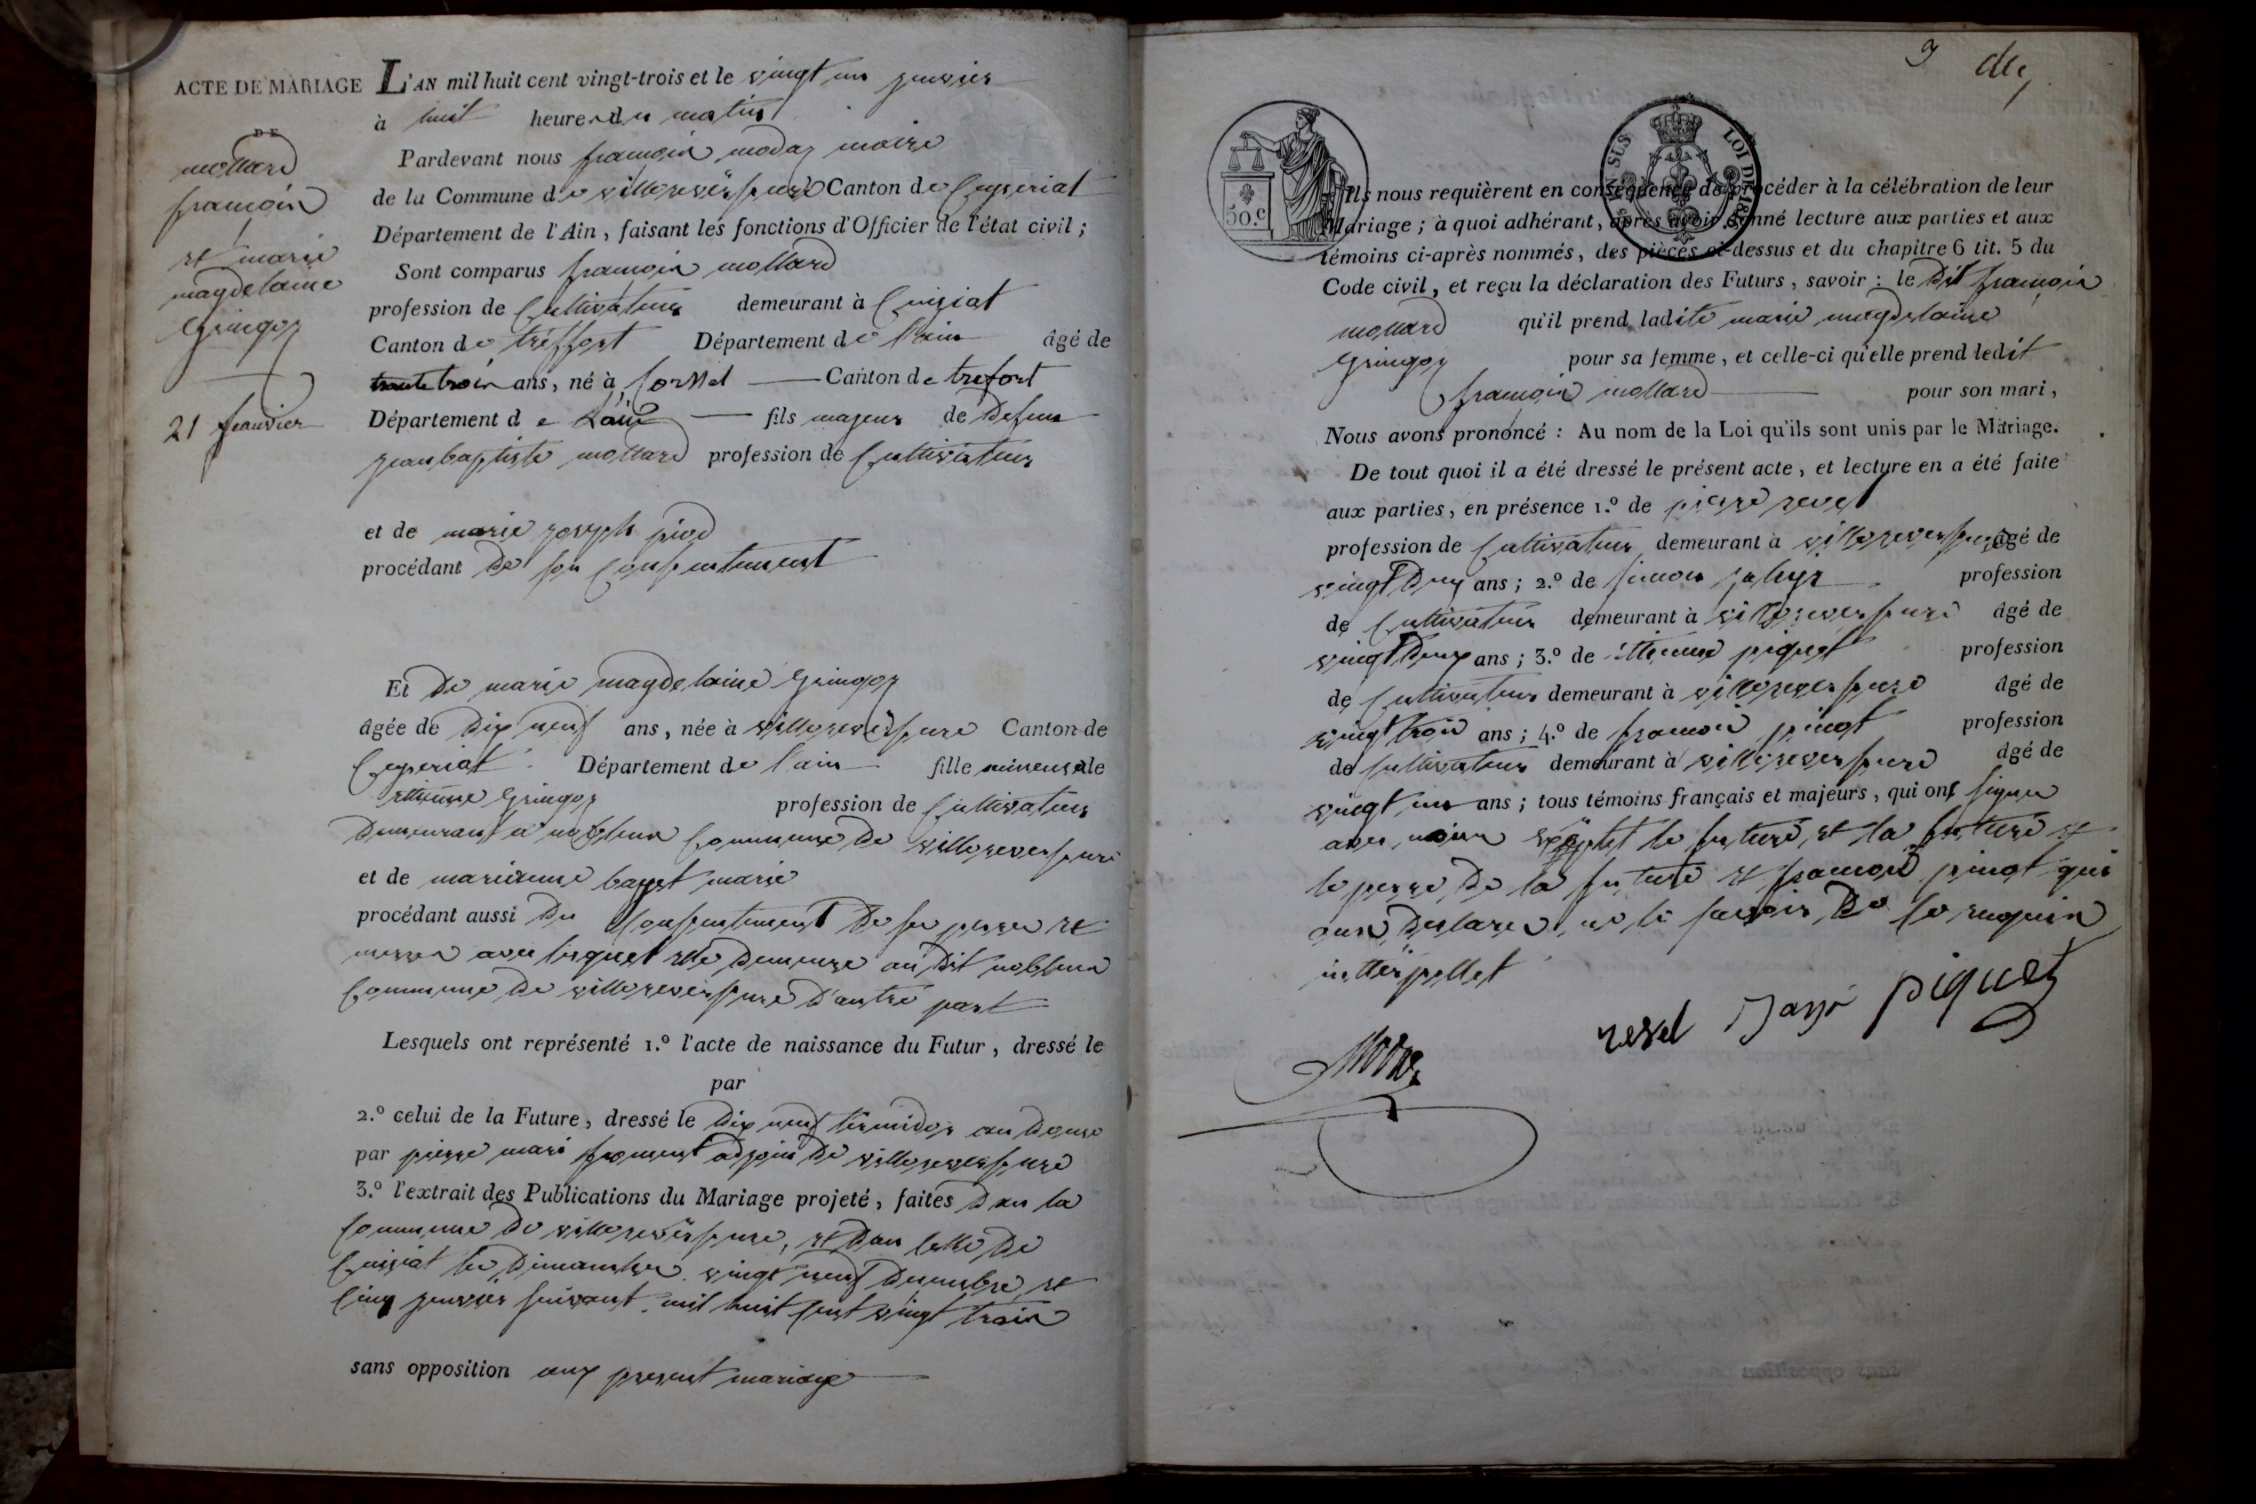 ACTE DE MARIAGE
DE
mollard
françoin
et marie
magdelaine
Gringoz
21 Janvier
L'AN mil huit cent vingt-trois et le vingt un janvier
à huit heures du matin
Pardevant nous françoin modas maire
de la Commune de villereversure Canton de Ceyseriat
Département de l'Ain, faisant les fonctions d'Officier de l'état civil ;
Sont comparus françoin mollard
profession de Cultivateur demeurant à Cuisiat
Canton de tréffort Département de l'ain âgé de
trente troin ans, né à Canton de trefort
Département de Lain fils majeur de Defun
jeanbaptiste mollard profession de Cultivateur
et de marie joseph piod
procédant De son Consentement
Et De marie magdelaine Gringoz
âgée de Dix neuf ans, née à villereversure Canton de
Ceyseriat Département de l'ain fille mineure de
ettienne Gringoz profession de Cultivateur
Demeurant a noblens Commune De villereversure
et de marianne bayet marie
procédant aussi Du Consentement De se perre et
merre avec lesquel elle Demeure au Dit noblens
Commune De villereversure D'autre part
Lesquels ont représenté 1.º l'acte de naissance du Futur, dressé le
par
2.º celui de la Future, dressé le Dix neuf termidor an Douse
par pierre mari froment adjoin De villereversure
3.º l'extrait des Publications du Mariage projeté, faites Dan la
Commune De villereversure, et Dan celle De
Cuisiat le Dimanches vingt neuf Desembre et
Cinq janvier suivant mil huit Cent vingt troin
sans opposition aux present mariage
3
Ils nous requièrent en conséquence de procéder à la célébration de leur
Mariage ; à quoi adhérant, après avoir donné lecture aux parties et aux
témoins ci-après nommés, des pièces ci-dessus et du chapitre 6 tit. 5 du
Code civil, et reçu la déclaration des Futurs, savoir : le Dit françoin
mollard qu'il prend ladite marie magdelaine
Gringoz pour sa femme, et celle-ci qu'elle prend ledit
françoin mollard pour son mari,
Nous avons prononcé : Au nom de la Loi qu'ils sont unis par le Mariage.
De tout quoi il a été dressé le présent acte, et lecture en a été faite
aux parties, en présence 1.º de pierre revel
profession de Cultivateur demeurant à villereversure âgé de
vingt Deux ans ; 2.º de simon profession
de Cultivateur demeurant à villereversure âgé de
vingt Deux ans ; 3.º de ettienne piquet profession
de Cultivateur demeurant à villereversure âgé de
vingt troin ans ; 4.º de françoin pinot profession
de Cultivateur demeurant à villereversure âgé de
vingt un ans ; tous témoins français et majeurs, qui ont signer
avec le future, et la future et
le perre De la future et françoin pinot qui
Declarer ne le savoir De ce requin
intterpellet
revel piquet
50.c
LOI DE 181
EN SUS